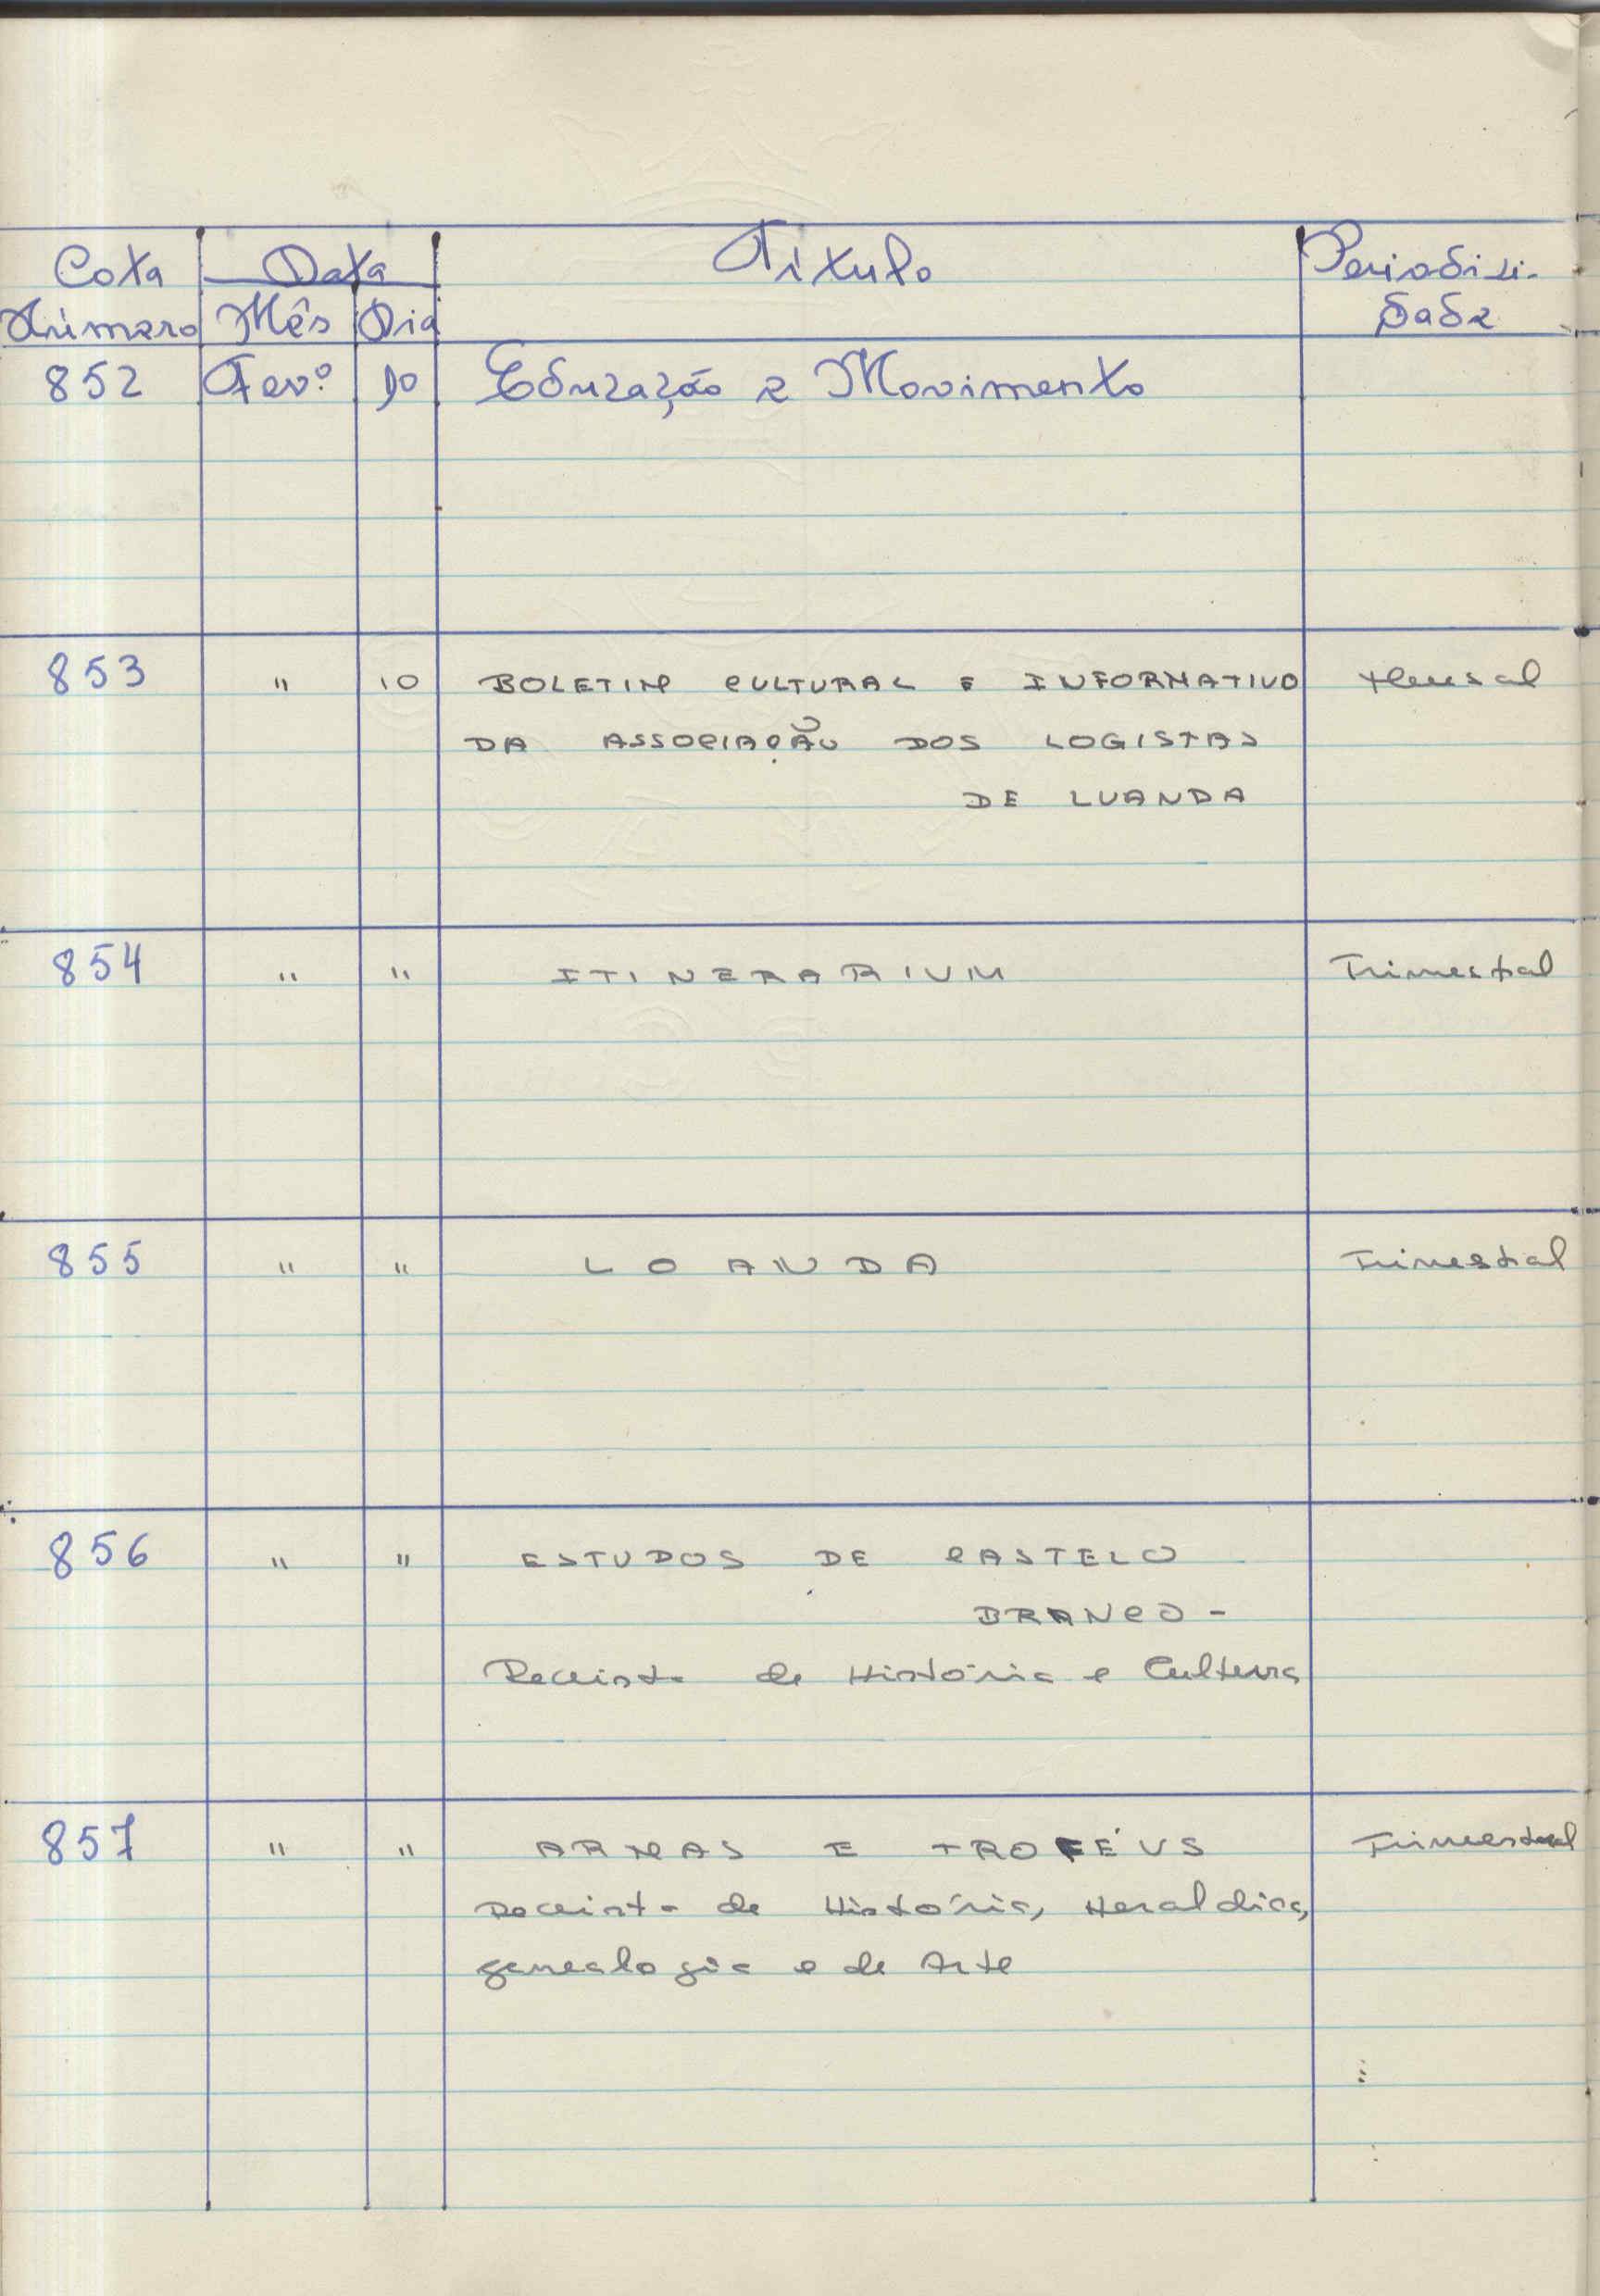 Cota Data Título Periodici-
Número Mês Dia dade
852 Fev.º 10 Educação e Movimento
853 " 10 BOLETIM CULTURAL E INFORMATIVO Mensal
DA ASSOCIAÇÃO DOS LOGISTAS
DE LUANDA
854 " " ITINERARIUM Trimestral
855 " " LOANDA Trimestral
856 " " ESTUDOS DE CASTELO
BRANCO -
Revista de História e Cultura
857 " " ARMAS E TROFÉUS Trimestral
Revista de História, Heraldica,
genealogia e de Arte